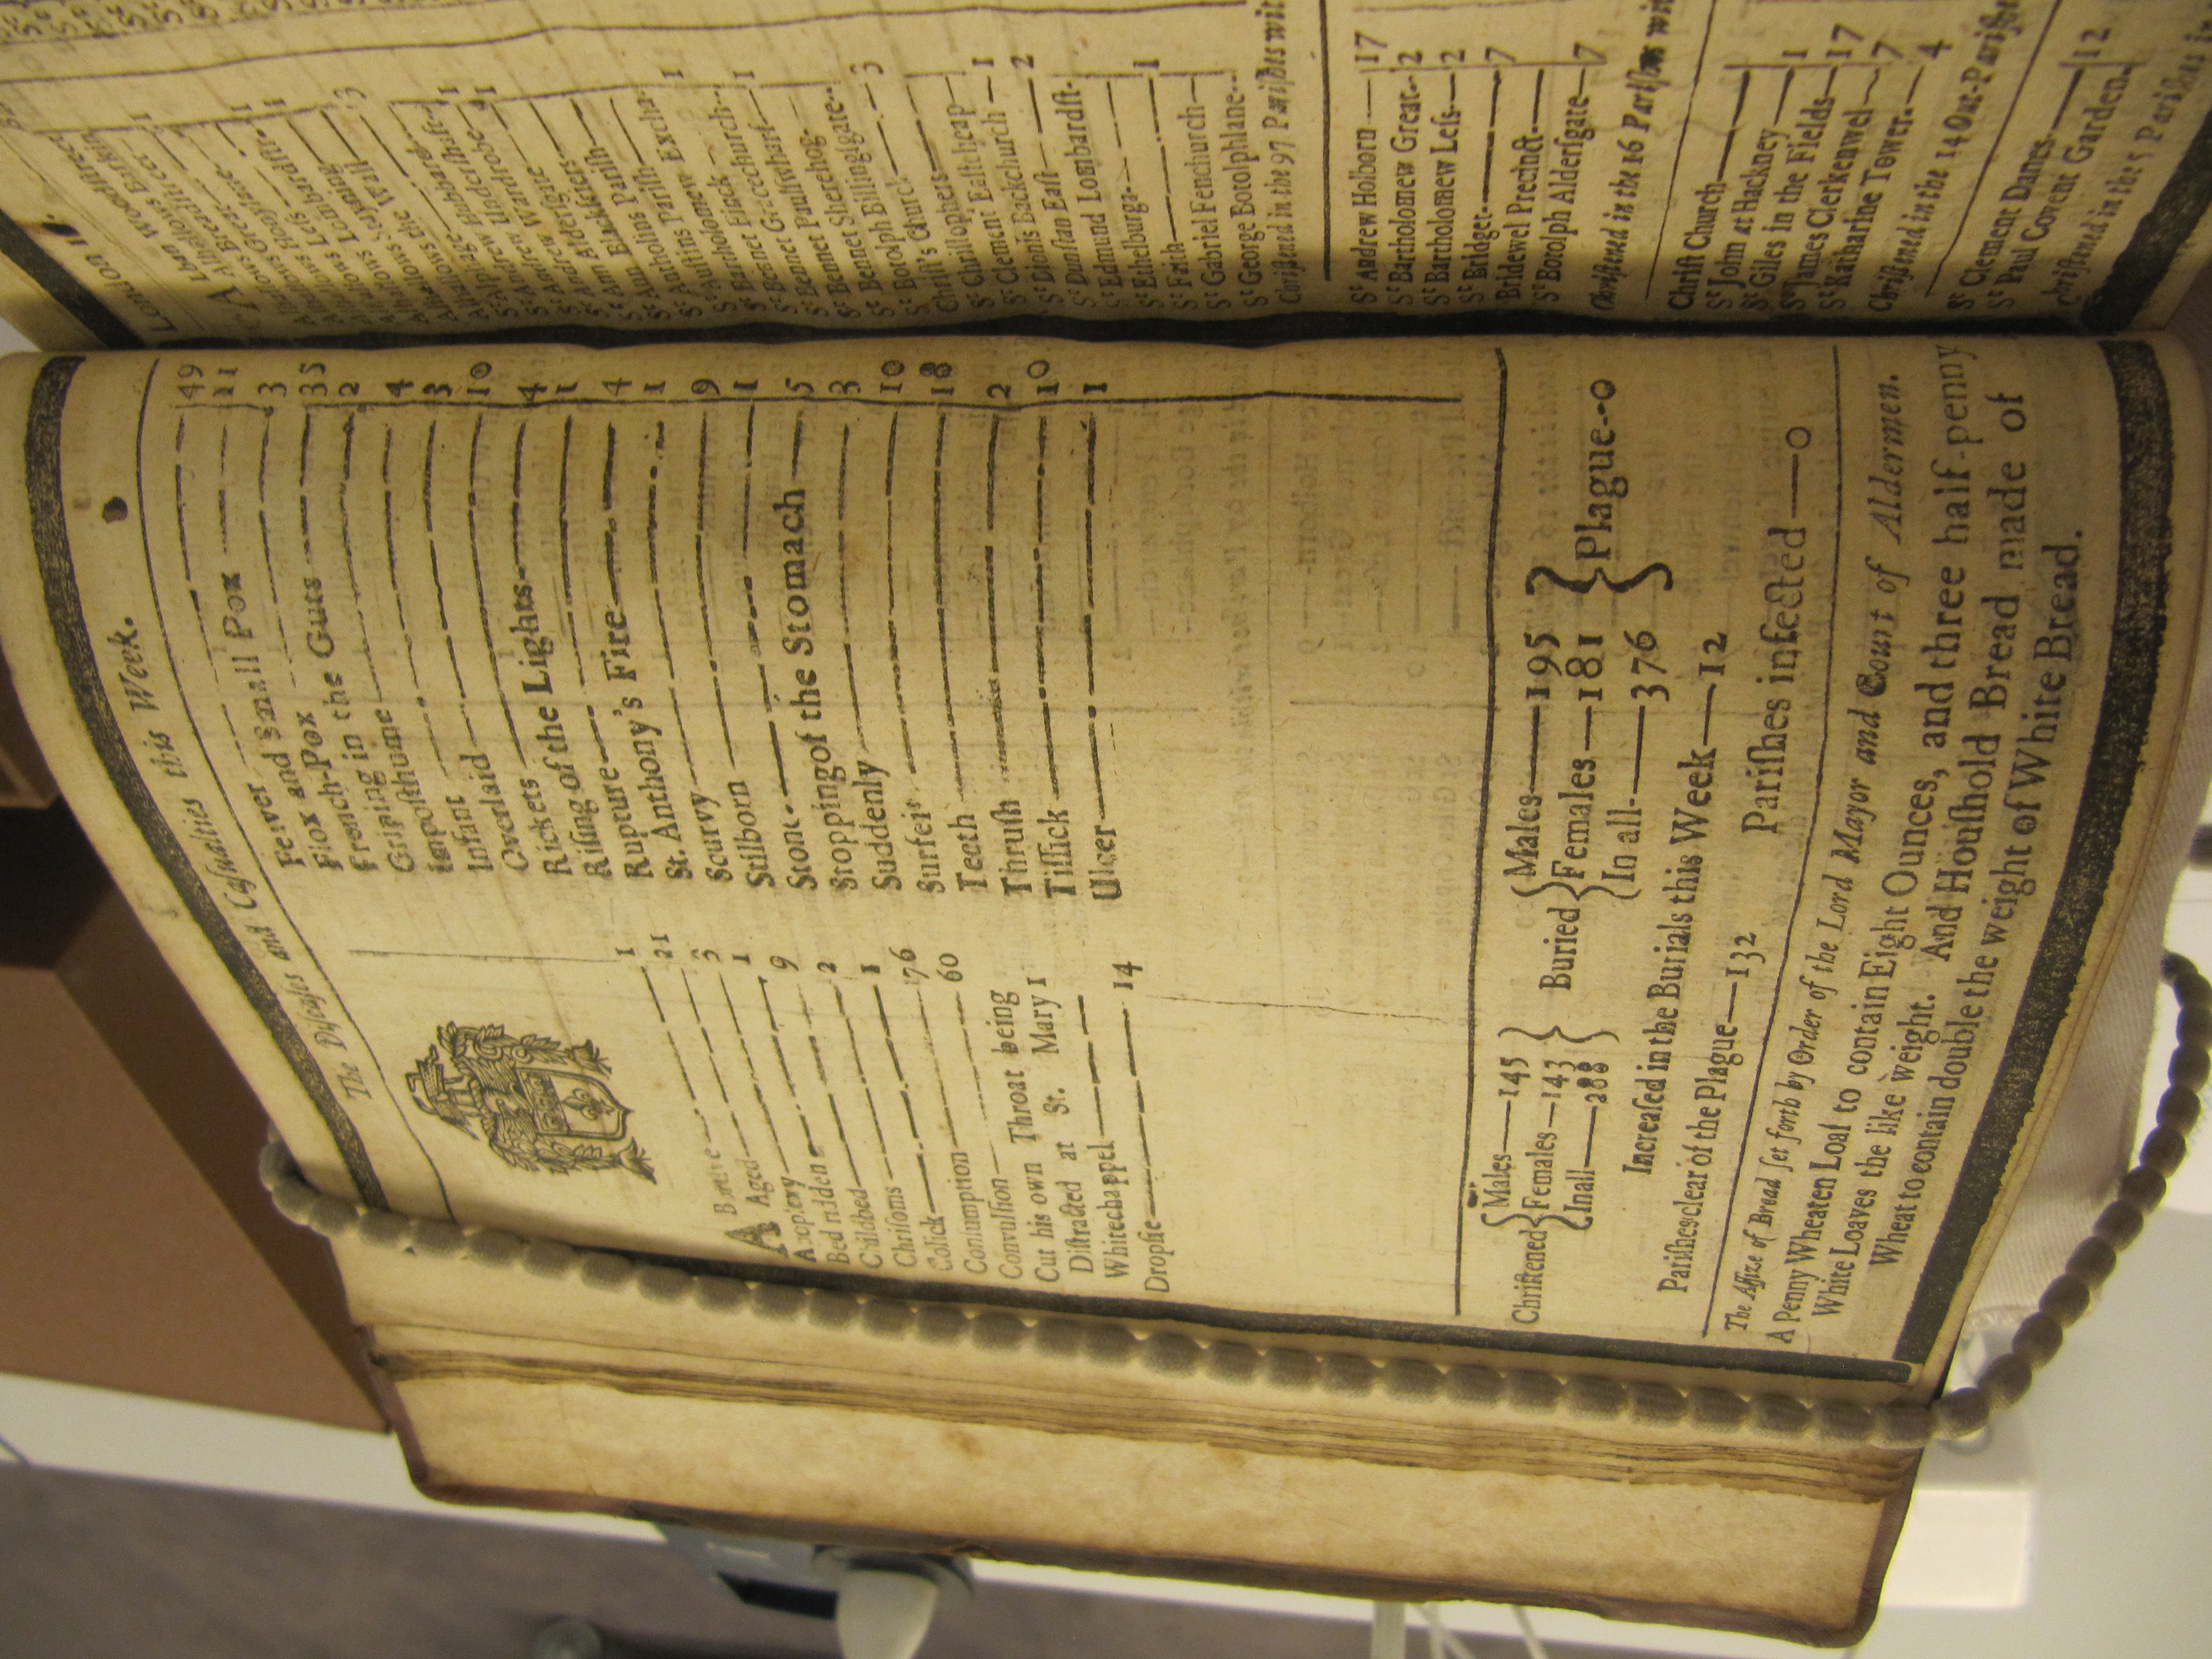 The Diseases and Casualties this Week.
ABortive 1
Aged 21
Apoplexy 3
Bedridden 1
Childbed 9
Chrisoms 2
Colick 1
Consumption 76
Convulsion 60
Cut his own Throat being
Distracted at St. Mary 1
Whitechappel
Dropsie 14
Feiver 49
Flox and Small Pox 11
French-Pox 3
Griping in the Guts 35
Imposthume 2
Infant 4
Overlaid 3
Rickets 10
Rising of the Lights 4
Rupture 1
St. Anthony's Fire 4
Scurvy 1
Stilborn 9
Stone 1
Stopping of the Stomach 5
Suddenly 3
Surfeit 10
Teeth 18
Thrush 2
Tissick 10
Ulcer 1
Christened { Males—145
Females—143
In all—288 }
Buried { Males—195
Females—181
In all—376 } Plague--0
Increased in the Burials this Week—12
Parishes clear of the Plague—132 Parishes infected—0
The Assize of Bread set forth by Order of the Lord Mayor and Court of Aldermen.
A Penny Wheaten Loaf to contain Eight Ounces, and three half-penny
White Loaves the like weight. And Houshold Bread made of
Wheat to contain double the weight of White Bread.
London
ALban Woodstreet
Alhallows Barking
Alhallows Breadstreet 1
Alhallows Great
Alhallows Honylane 1
Alhallows Less 1
Alhallows Lombardstr.
Alhallows Staining 3
Alhallows the Wall
Alphage
St Andrew Hubbard 1
St Andrew Undershaft 1
St Andrew Wardrobe
St Ann Aldersgate
St Ann Blackfriers
St Antholins Parish
St Austins Parish 1
St Bartholomew Excha.
St Bennet Finck 1
St Bennet Gracechurch
St Bennet Paulswharf
St Bennet Sherehog
St Botolph Billingsgate 3
Christ's Church
St Christophers
St Clement Eastcheap 1
St Dionis Backchurch 2
St Dunstan East
St Edmund Lombardst.
St Ethelburga 1
St Faith
St Gabriel Fenchurch
St George Botolphlane
Christned in the 97 Parishes wit
St Andrew Holborn 17
St Bartholomew Great 2
St Bartholomew Less 2
St Bridget 7
Bridewel Precinct
St Botolph Aldersgate 7
Christned in the 16 Parishes wit
Christ Church
St John at Hackney 1
St Giles in the Fields 17
St James Clerkenwel 7
St Katharine Tower 4
Christned in the 14 Out-Parishe
St Clement Danes 12
St Paul Covent Garden
Christned in the 5 Parishes i